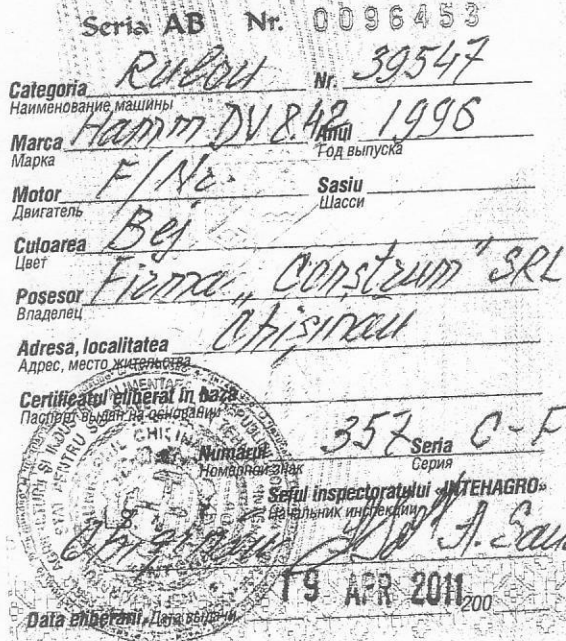 Seria AB Nr. 0096453
Categoria Rulou Nr. 39547
Наименование машины
Marca Hamm DV 8.42 Anul 1996
Марка Год выпуска
Motor F/Nr. Sasiu
Двигатель Шасси
Culoarea Bej
Цвет
Posesor Firma „Construm" SRL
Владелец
Adresa, localitatea Chişinău
Адрес, место жительства
Certificatul eliberat în baza
Паспорт выдан на основании
Numărul 357 Seria C-F
Номерной знак Серия
Şeful inspectoratului «INTEHAGRO»
Начальник инспекции
Chişinău A.
19 APR 2011 200
Data eliberării, Дата выдачи